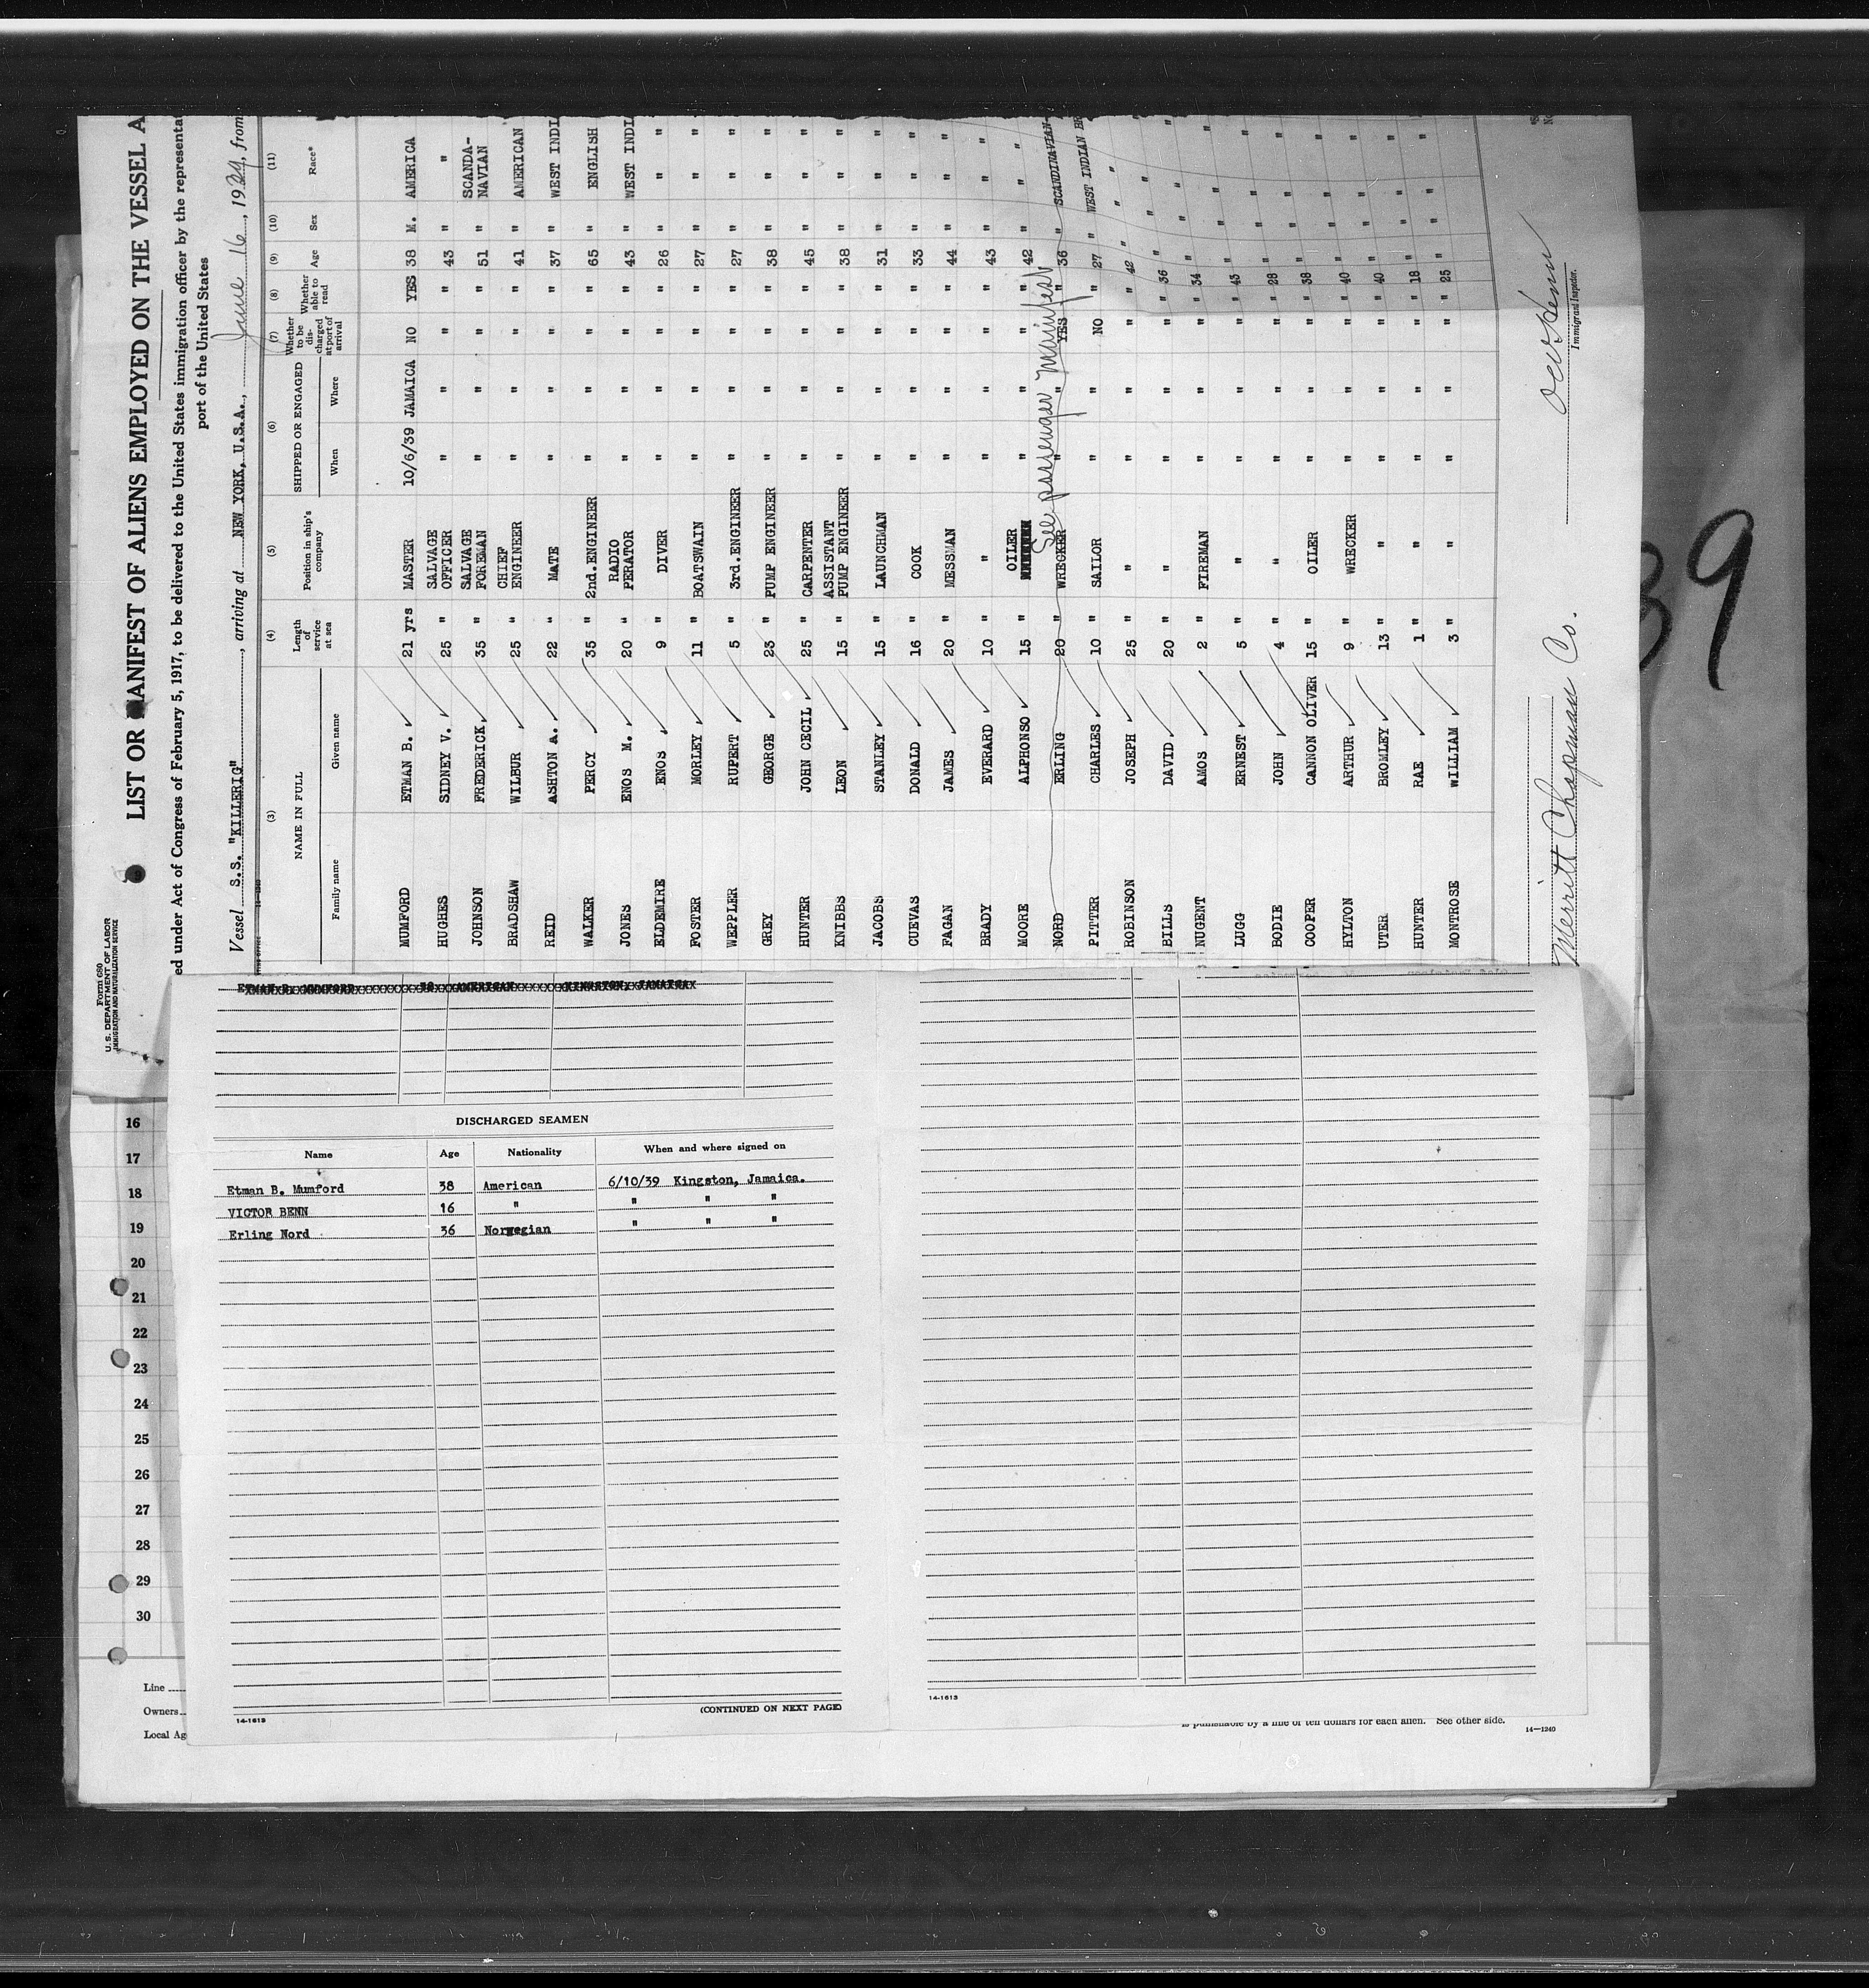 Form 680
U. S. DEPARTMENT OF LABOR
IMMIGRATION AND NATURALIZATION SERVICE
LIST OR MANIFEST OF ALIENS EMPLOYED ON THE VESSEL A
ed under Act of Congress of February 5, 1917, to be delivered to the United States immigration officer by the representa
port of the United States
Vessel S.S. "KILLERIG", arriving at NEW YORK, U.S.A., June 16, 1939, from
(3) (4) (5) (6) (7) (8) (9) (10) (11)
NAME IN FULL Length of service at sea Position in ship's company SHIPPED OR ENGAGED Whether to be discharged at port of arrival Whether able to read Age Sex Race*
Family name Given name When Where
MUMFORD ETMAN B. 21 yrs MASTER 10/6/39 JAMAICA NO YES 38 M. AMERICA
HUGHES SIDNEY V. 25 " SALVAGE OFFICER " " " " 43 " "
JOHNSON FREDERICK 35 " SALVAGE FOREMAN " " " " 51 " SCANDA-NAVIAN
BRADSHAW WILBUR 25 " CHIEF ENGINEER " " " " 41 " AMERICAN
REID ASHTON A. 22 " MATE " " " " 37 " WEST INDI
WALKER PERCY 35 " 2nd.ENGINEER " " " " 65 " ENGLISH
JONES ENOS M. 20 " RADIO PERATOR " " " " 43 " WEST INDI
ELDEMIRE ENOS 9 " DIVER " " " " 26 " " "
FOSTER MORLEY 11 " BOATSWAIN " " " " 27 " " "
WEPPLER RUPERT 5 " 3rd.ENGINEER " " " " 27 " " "
GREY GEORGE 23 " PUMP ENGINEER " " " " 38 " " "
HUNTER JOHN CECIL 25 " CARPENTER " " " " 45 " " "
KNIBBS LEON 15 " ASSISTANT PUMP ENGINEER " " " " 38 " " "
JACOBS STANLEY 15 " LAUNCHMAN " " " " 31 " " "
CUEVAS DONALD 16 " COOK " " " " 33 " " "
FAGAN JAMES 20 " MESSMAN " " " " 44 " " "
BRADY EVERARD 10 " " " " " " 43 " " "
MOORE ALPHONSO 15 " OILER " " " " 42 " " "
See passenger Mainifest
NORD ERLING 20 " WRECKER " " YES " 36 " SCANDINAVIAN
PITTER CHARLES 10 " SAILOR " " NO " 27 " WEST INDIAN BR
ROBINSON JOSEPH 25 " " " " " " 42 " " "
BILLS DAVID 20 " " " " " " 36 " " "
NUGENT AMOS 2 " FIREMAN " " " " 34 " " "
LUGG ERNEST 5 " " " " " " 43 " " "
BODIE JOHN 4 " " " " " " 28 " " "
COOPER CANNON OLIVER 15 " OILER " " " " 38 " " "
HYLTON ARTHUR 9 " WRECKER " " " " 40 " " "
UTER BROMLEY 13 " " " " " " 40 " " "
HUNTER RAE 1 " " " " " " 18 " " "
MONTROSE WILLIAM 3 " " " " " 25 " "
Merritt Chapman Co.
Immigrant Inspector.
39
ETMAN B. MUMFORD 38 AMERICAN KINGSTON, JAMAICA
DISCHARGED SEAMEN
Name Age Nationality When and where signed on
Etman B. Mumford 38 American 6/10/39 Kingston, Jamaica.
VICTOR BENN 16 " " " "
Erling Nord 36 Norwegian " " "
(CONTINUED ON NEXT PAGE)
14-1613
14-1613
16
17
18
19
20
21
22
23
24
25
26
27
28
29
30
Line
Owners
Local Ag
is punishable by a fine of ten dollars for each alien. See other side.
14—1240